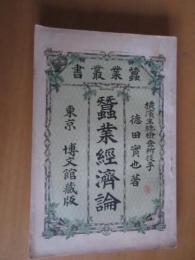 蠶業叢書
橫濱生絲檢査所技手
德田實也著
蠶業經濟論
東京 博文館藏版